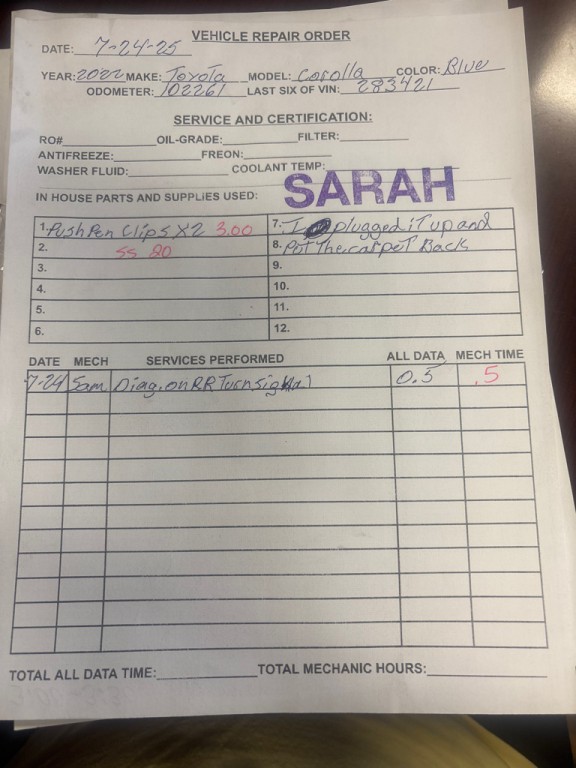 VEHICLE REPAIR ORDER
DATE: 7-24-25
YEAR: 2022 MAKE: Toyota MODEL: Corolla COLOR: Blue
ODOMETER: 102261 LAST SIX OF VIN: 283421
SERVICE AND CERTIFICATION:
RO# OIL-GRADE: FILTER:
ANTIFREEZE: FREON:
WASHER FLUID: COOLANT TEMP:
IN HOUSE PARTS AND SUPPLIES USED: SARAH
1. Push Pen Clips X2 3.00 7. I plugged it up and
2. SS 20 8. Put The carpet Back
3. 9.
4. 10.
5. 11.
6. 12.
DATE MECH SERVICES PERFORMED ALL DATA MECH TIME
7-24 Sam Diag. on RR Turn signal 0.5 .5
TOTAL ALL DATA TIME: TOTAL MECHANIC HOURS: